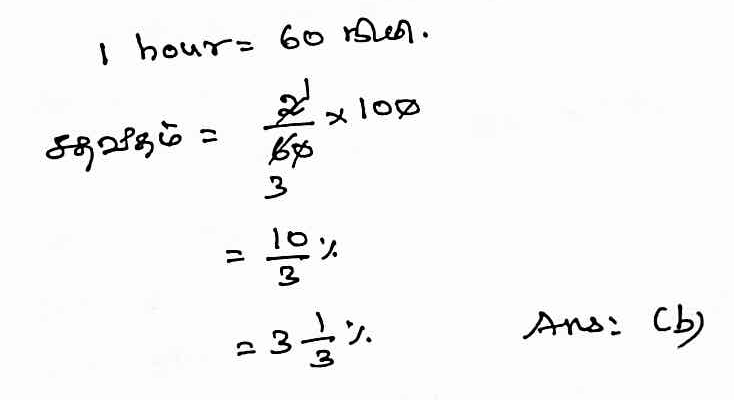 1 hour = 60 நிமி.
சதவீதம் = 2/60 × 100
1
3
= 10/3 %
= 3 1/3 %
Ans: (b)